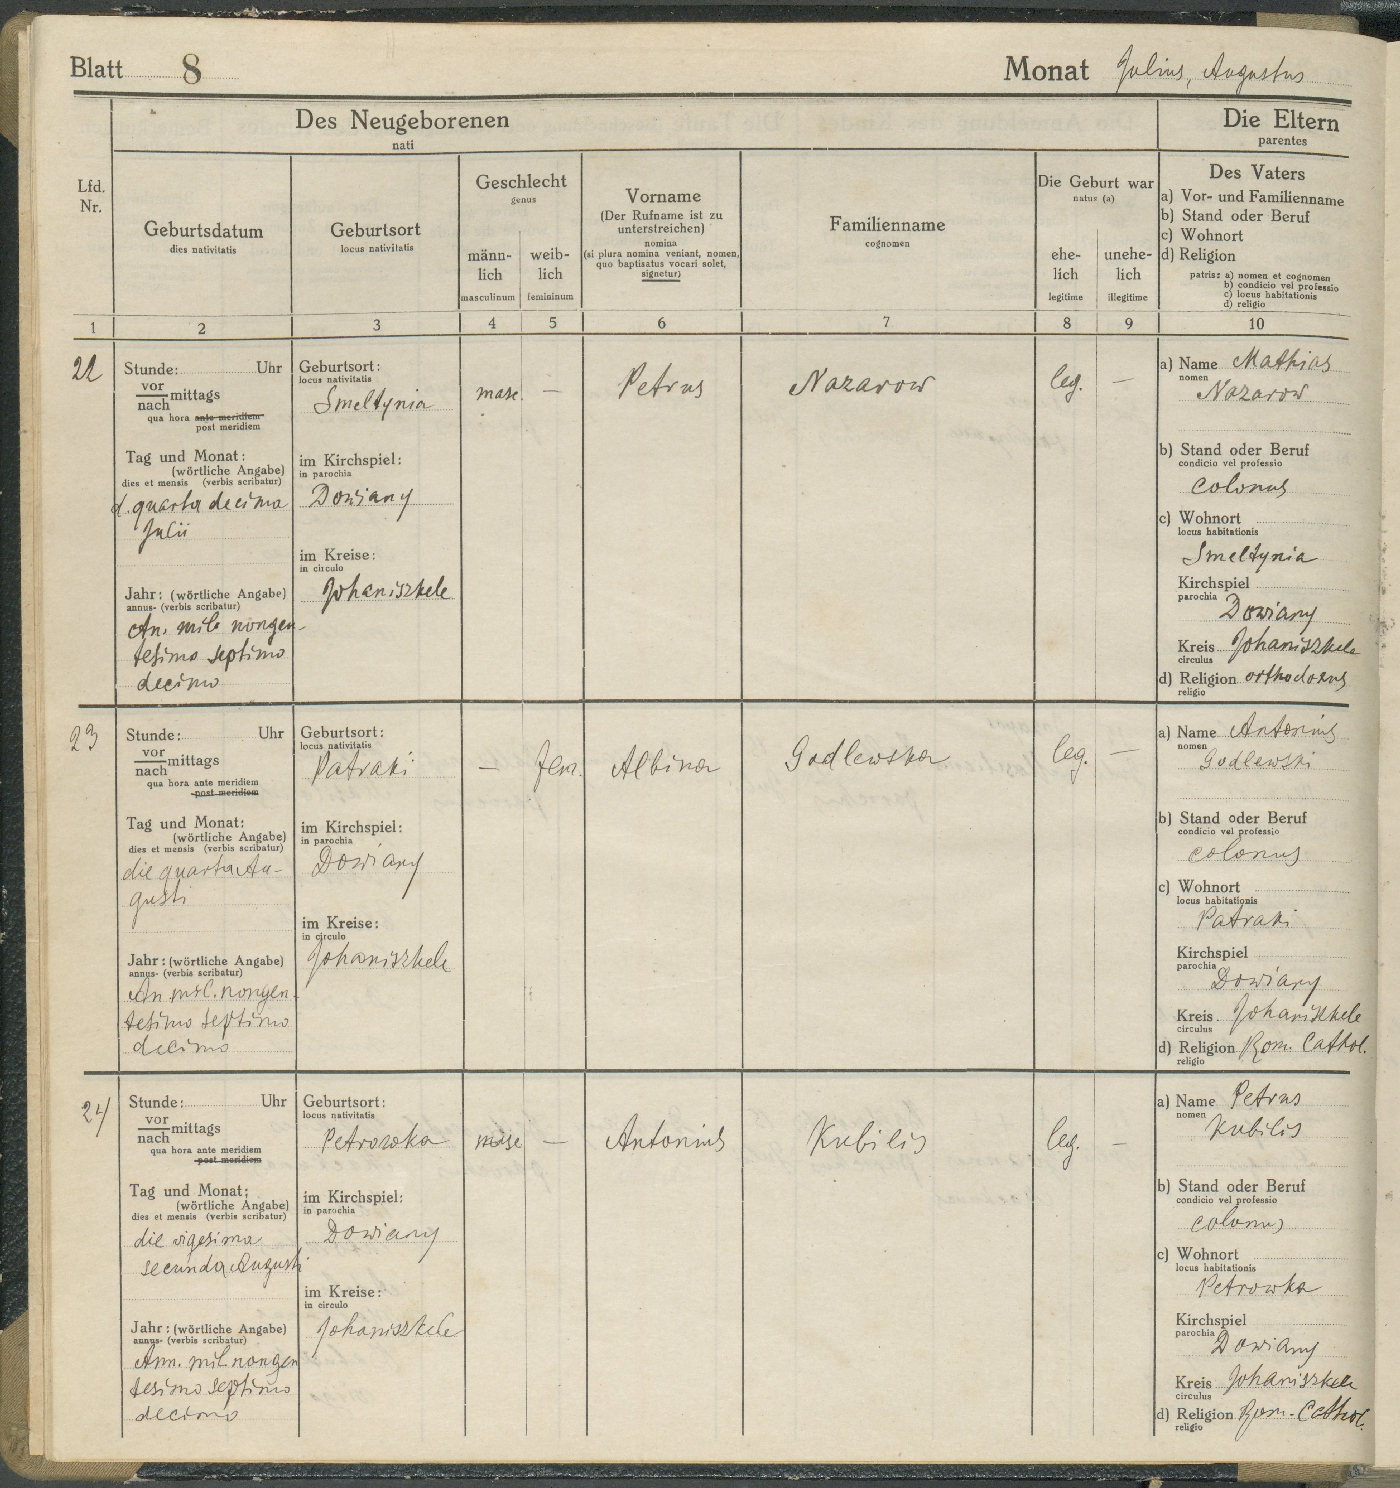 Blatt 8
Monat Julius, Augustus
Des Neugeborenen
nati
Die Eltern
parentes
Lfd.
Nr.
Geburtsdatum
dies nativitatis
Geburtsort
locus nativitatis
Geschlecht
genus
männ-
lich
masculinum
weib-
lich
femininum
Vorname
(Der Rufname ist zu
unterstreichen)
nomina
(si plura nomina veniant, nomen,
quo baptisatus vocari solet,
signetur)
Familienname
cognomen
Die Geburt war
natus (a)
ehe-
lich
legitime
unehe-
lich
illegitime
Des Vaters
a) Vor- und Familienname
b) Stand oder Beruf
c) Wohnort
d) Religion
patris: a) nomen et cognomen
b) condicio vel professio
c) locus habitationis
d) religio
1 2 3 4 5 6 7 8 9 10
22
Stunde: Uhr
vor
mittags
nach
qua hora ante meridiem
post meridiem
Tag und Monat:
(wörtliche Angabe)
dies et mensis (verbis scribatur)
d. quarta decima
Julii
Jahr: (wörtliche Angabe)
annus- (verbis scribatur)
An. mil. nongen-
tesimo septimo
decimo
Geburtsort:
locus nativitatis
Smeltynia
im Kirchspiel:
in parochia
Dowiany
im Kreise:
in circulo
Johaniszkele
masc. —
Petrus
Nazarow
leg. —
a) Name Mathias
nomen
Nazarow
b) Stand oder Beruf
condicio vel professio
colonus
c) Wohnort
locus habitationis
Smeltynia
Kirchspiel
parochia
Dowiany
Kreis Johaniszkele
circulus
d) Religion orthodoxus
religio
23
Stunde: Uhr
vor
mittags
nach
qua hora ante meridiem
post meridiem
Tag und Monat:
(wörtliche Angabe)
dies et mensis (verbis scribatur)
die quarta Au-
gusti
Jahr: (wörtliche Angabe)
annus- (verbis scribatur)
An mil. nongen-
tesimo septimo
decimo
Geburtsort:
locus nativitatis
Patraki
im Kirchspiel:
in parochia
Dowiany
im Kreise:
in circulo
Johaniszkele
— fem.
Albina
Godlewska
leg. —
a) Name Antonius
nomen
Godlewski
b) Stand oder Beruf
condicio vel professio
colonus
c) Wohnort
locus habitationis
Patraki
Kirchspiel
parochia
Dowiany
Kreis Johaniszkele
circulus
d) Religion Rom. Cathol.
religio
24
Stunde: Uhr
vor
mittags
nach
qua hora ante meridiem
post meridiem
Tag und Monat:
(wörtliche Angabe)
dies et mensis (verbis scribatur)
die vigesima
secunda Augusti
Jahr: (wörtliche Angabe)
annus- (verbis scribatur)
Ann. mil nongen
tesimo septimo
decimo
Geburtsort:
locus nativitatis
Petrowka
im Kirchspiel:
in parochia
Dowiany
im Kreise:
in circulo
Johaniszkele
masc —
Antonius
Kubilis
leg. —
a) Name Petrus
nomen
Kubilis
b) Stand oder Beruf
condicio vel professio
colonus
c) Wohnort
locus habitationis
Petrowka
Kirchspiel
parochia
Dowiany
Kreis Johaniszkele
circulus
d) Religion Rom. Cathol.
religio